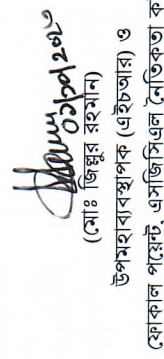 ০১/১০/২০২৩
(মোঃ জিল্লুর রহমান)
উপমহাব্যবস্থাপক (এইচআর) ও
ফোকাল পয়েন্ট, এসজিসিএল নৈতিকতা ক